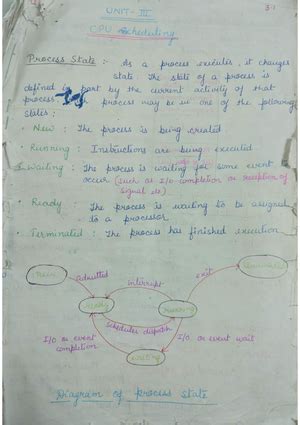 UNIT - III
3.1
CPU Scheduling
Process State :- As a process executes, it changes
state. The state of a process is
defined in part by the current activity of that
process. process may be in one of the following
states :
• New : The process is being created
• Running : Instructions are being executed
• Waiting : The process is waiting for some event
occur (such as I/O completion or reception of
signal
• Ready : The process is waiting to be assigned
to a processor.
• Terminated : The process has finished execution
New
Admitted
interrupt
exit
Terminated
Ready
Running
Scheduler dispatch
I/O or event
completion
I/O or event wait
waiting
Diagram of process state